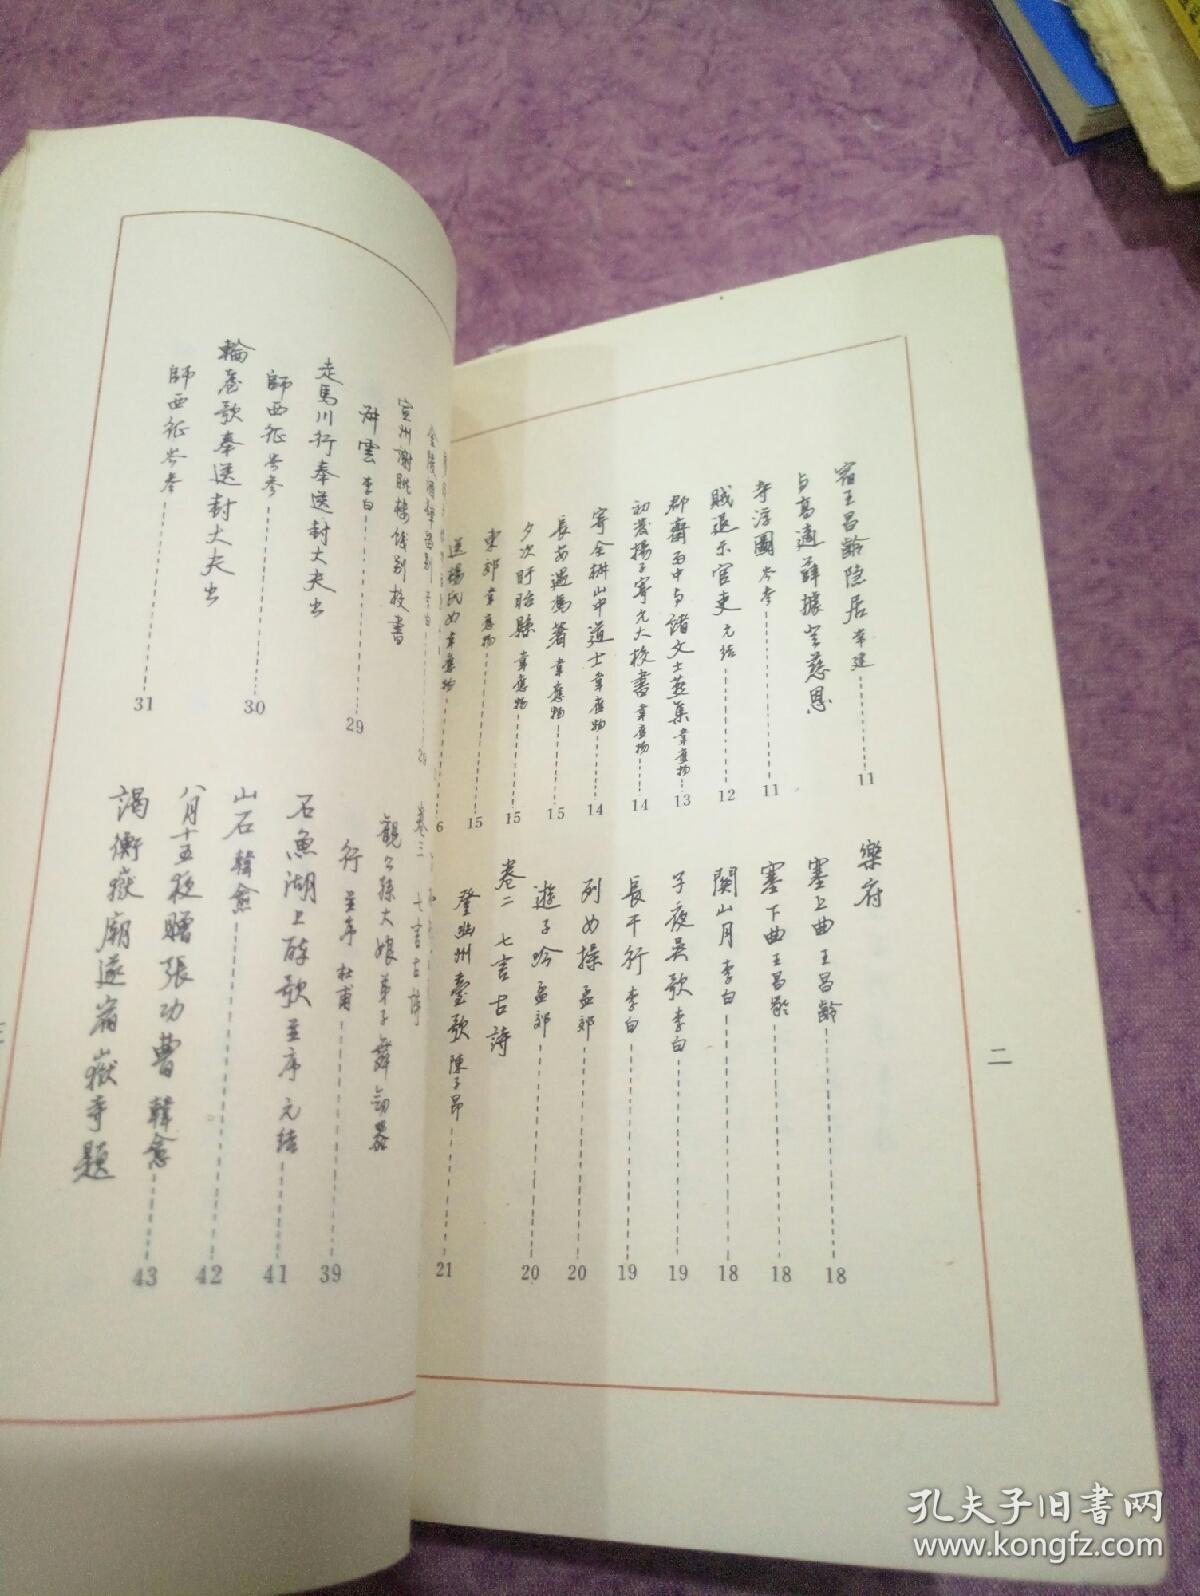 宿王昌齡隐居 常建 11
与高適薛據登慈恩
寺浮圖 岑參 11
賊退示官吏 元结 12
郡齋雨中与諸文士燕集 韋應物 13
初發揚子寄元大校書 韋應物 14
寄全椒山中道士 韋應物 14
長安遇馮著 韋應物 15
夕次盱眙縣 韋應物 15
東郊 韋應物 15
送楊氏女 韋應物 6
樂府
塞上曲 王昌齡 18
塞下曲 王昌齡 18
関山月 李白 18
子夜吴歌 李白 19
長干行 李白 19
列女操 孟郊 20
遊子吟 孟郊 20
卷二 七言古詩
登幽州臺歌 陳子昂 21
二
金陵酒肆留别 李白
宣州謝朓樓餞别校書
叔雲 李白 29
走馬川行奉送封大夫出
師西征 岑參 30
輪臺歌奉送封大夫出
師西征 岑參 31
卷三 七言古詩
觀公孫大娘弟子舞劍器
行 並序 杜甫 39
石魚湖上醉歌 並序 元结 41
山石 韓愈 42
八月十五夜贈張功曹 韓愈 43
謁衡嶽廟遂宿嶽寺題
孔夫子旧书网
www.kongfz.com